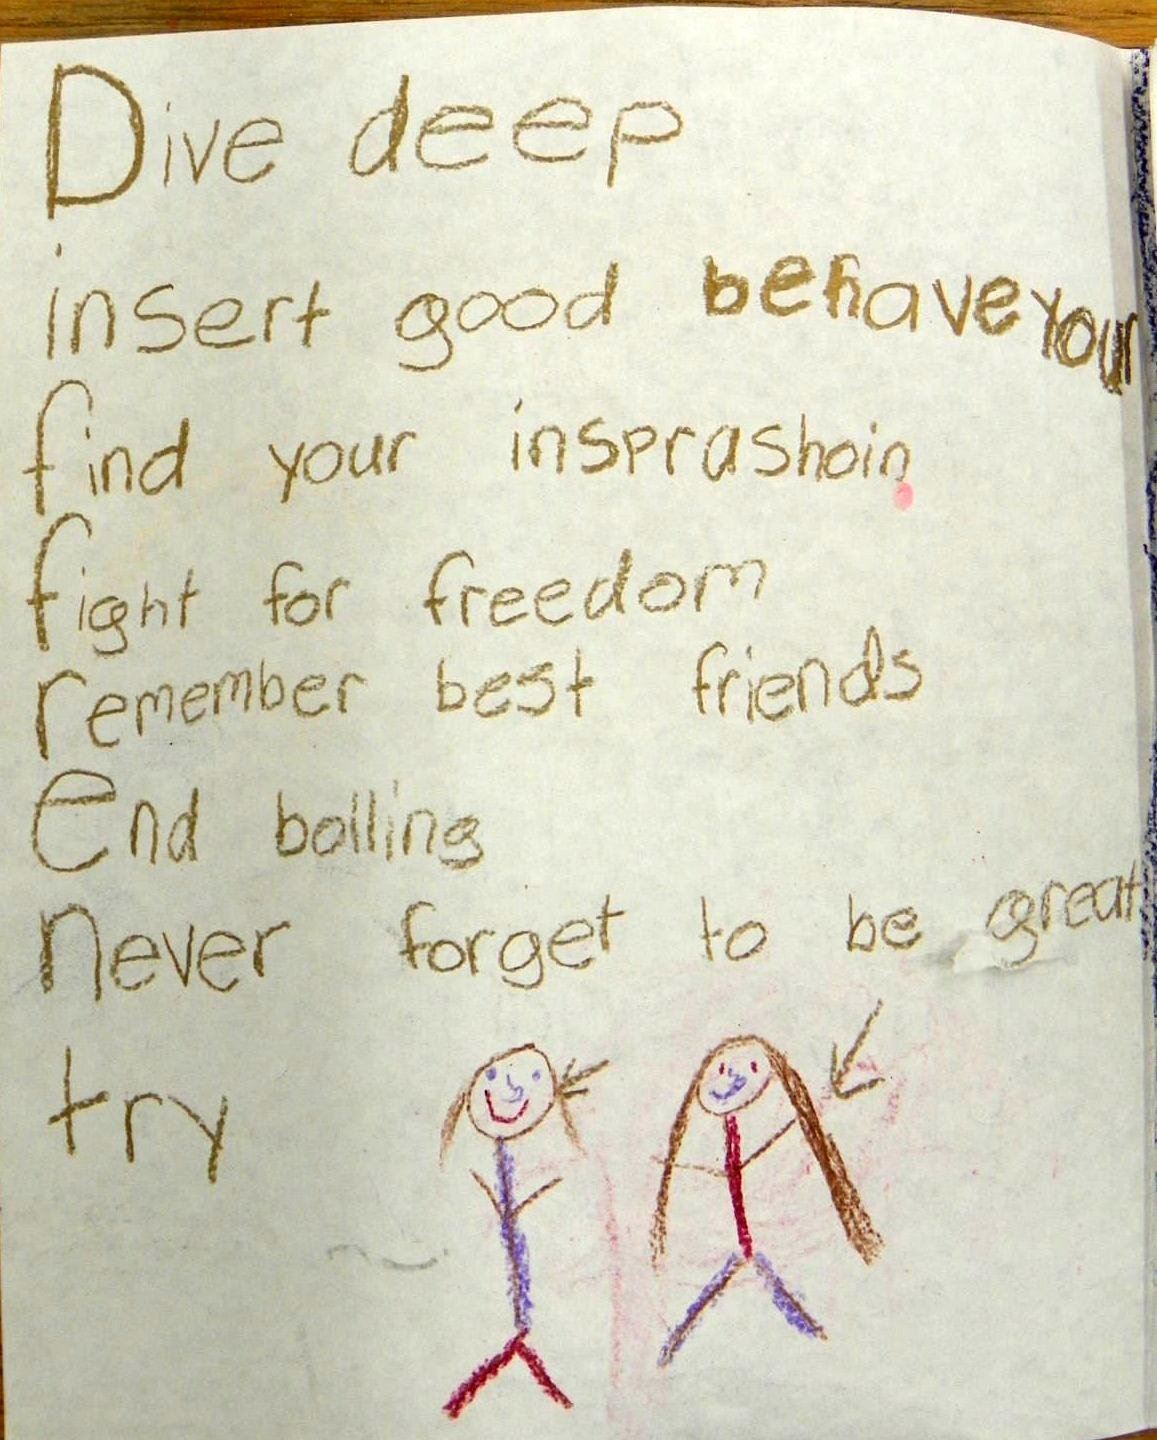 Dive deep
insert good behaveyour
find your insprashoin
fight for freedom
remember best friends
End bolling
never forget to be great
try